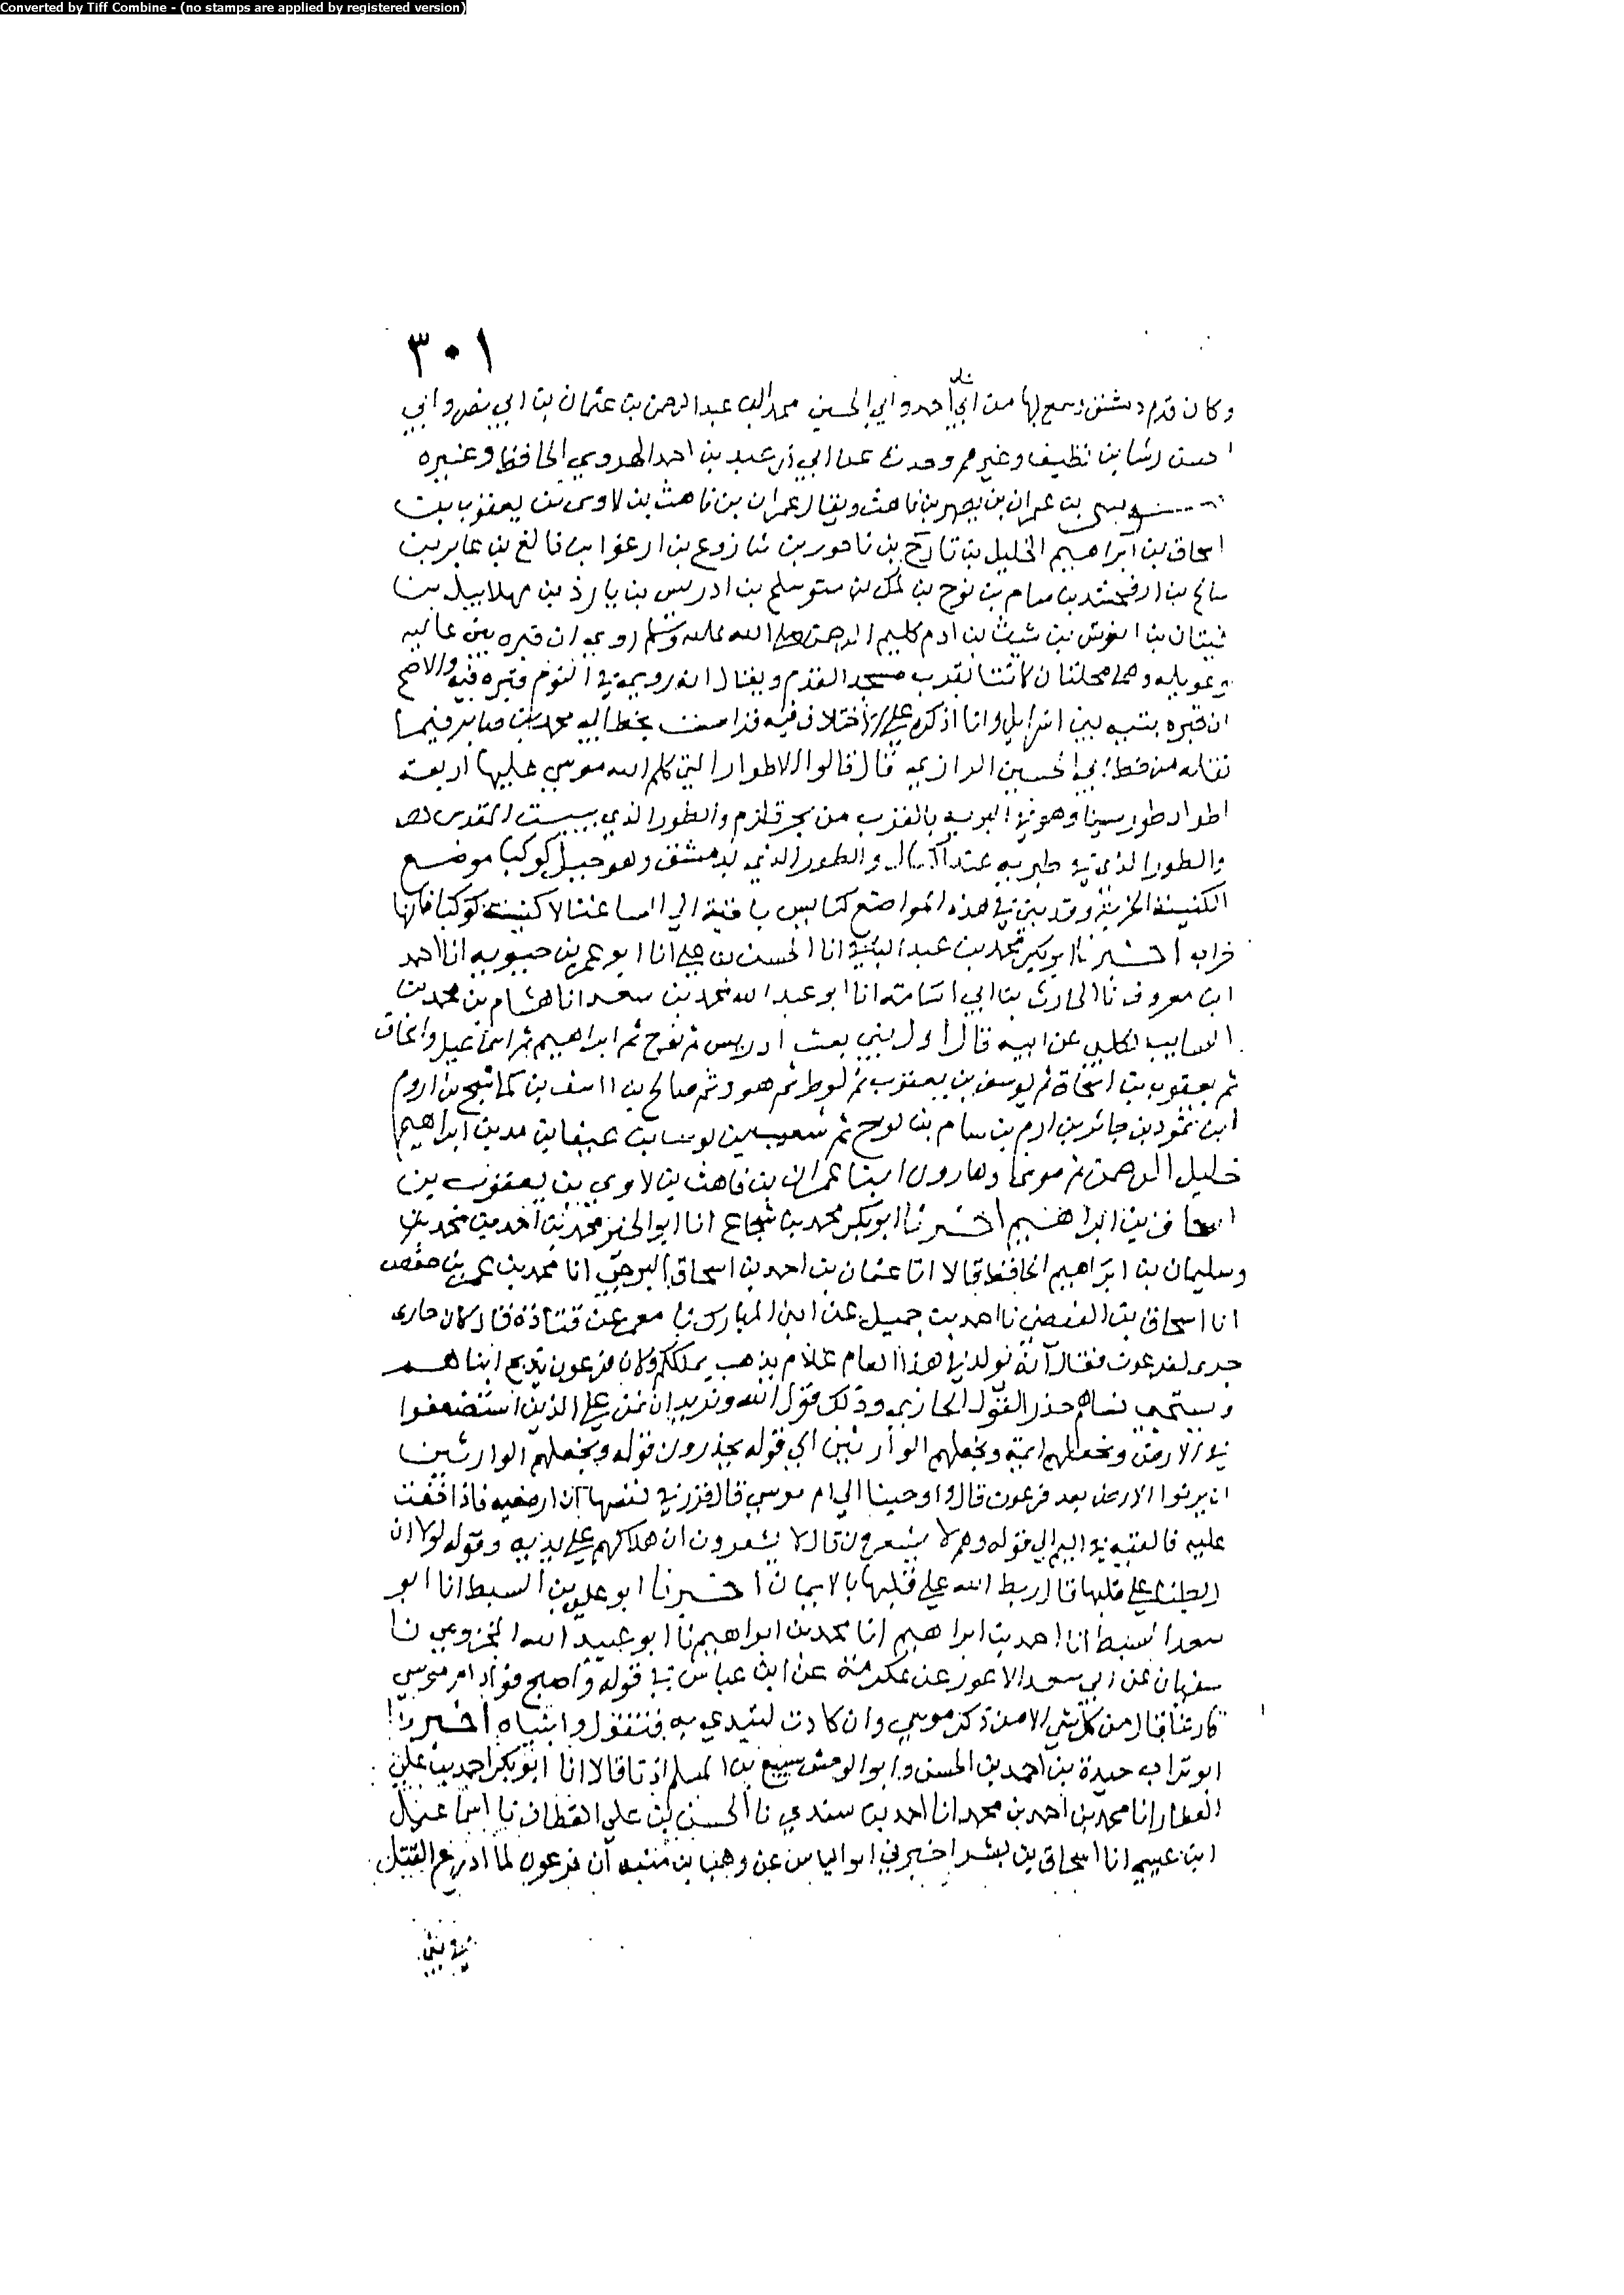 Converted by Tiff Combine - (no stamps are applied by registered version)
٣٠١
وكان قدم دمشق وسمع بها من ابي احمد وابي الحسين محمد ابن عبد الرحمن بن عثمان بن ابي نصر وابي
الحسن رشا بن نظيف وغيرهم وحدث عن ابي ذر عبد بن احمد الهروي الحافظ وغيره
موسى بن عمران بن يصهر بن قاهث ويقال عمران بن قاهث بن لاوى بن يعقوب بن
اسحاق بن ابراهيم الخليل بن تارخ بن ناحور بن شاروع بن ارغوا بن فالغ بن عابر بن
شالخ بن ارفخشد بن سام بن نوح بن لمك بن متوشلح بن ادريس بن يارذ بن مهلاييل بن
قينان بن انوش بن شيث بن ادم كليم الرحمن صلى الله عليه وسلم روي ان قبره بين عاليه
وعويليه وهما محلتان كانتا بقرب مسجد القدم ويقال انه روي في النوم قبره فيه والاصح
ان قبره بتيه بني اسرائيل وانا اذكره على الاختلاف فيه قرات بخط ابي محمد بن صابر فيما
نقله من خط ابي الحسين الرازي قال قالوا الاطوار التي كلم الله موسي عليها اربعة
اطوار طور سينا وهو في البريه بالقرب من بحر قلزم والطور الذي ببيت المقدس
والطور الذي في طبريه عند والطور الذي بدمشق وهو جبل كوكبا موضع
الكنيسة الخربة وقد بني في هذه المواضع كنايس باقية الي الساعة الا كنيسة كوكبا فانها
خراب اخبرنا ابو بكر محمد بن عبد الباقي انا الحسن بن علي انا ابو عمر بن حيويه انا احمد
ابن معروف نا الحارث بن ابي اسامة انا ابو عبد الله محمد بن سعد انا هشام بن محمد بن
السايب الكلبي عن ابيه قال اول نبي بعث ادريس ثم نوح ثم ابراهيم ثم اسماعيل واسحاق
ثم يعقوب بن اسحاق ثم يوسف بن يعقوب ثم لوط ثم هود ثم صالح بن اسف بن كماشج بن اروم
ابن ثمود بن جاثر بن ارم بن سام بن نوح ثم شعيب بن يوبب بن عيفا بن مدين ابراهيم
خليل الرحمن ثم موسى وهارون ابنا عمران بن قاهث بن لاوي بن يعقوب بن
اسحاق بن ابراهيم اخبرنا ابو بكر محمد بن شجاع انا ابو الخير محمد بن احمد بن محمد بن
وسليمان بن ابراهيم الحافظ قالا انا عثمان بن احمد بن اسحاق البرجي انا محمد بن عمر بن حفص
انا اسحاق بن الفيض نا احمد بن جميل عن ابن المبارك نا معمر عن قتادة قال كان حازى
حزى لفرعون فقال انه يولد في هذا العام غلام يذهب بملككم وكان فرعون يذبح ابناهم
ويستحيي نساهم حذر القول الحازي وذلك قول الله ونريد ان نمن على الذين استضعفوا
في الارض ونجعلهم ايمة ونجعلهم الوارثين الي قوله يحذرون قوله ونجعلهم الوارثين
ان يرثوا الارض بعد فرعون قال واوحينا الي ام موسي قال قذف في نفسها ان ارضعيه فاذا خفت
عليه فالقيه في اليم الي قوله وهم لا يشعرون قال لا يشعرون ان هلاكهم علي يديه وقوله لولا ان
ربطنا على قلبها قال ربط الله علي قلبها بالايمان اخبرنا ابو علي بن السبط انا ابو
سعد السبط انا احمد بن ابراهيم انا محمد بن ابراهيم نا ابو عبيد الله المخزومي نا
سفيان عن ابي سعد الاعور عن عكرمة عن ابن عباس في قوله واصبح فواد ام موسي
فارغا قال من كل شي الا من ذكر موسي وان كادت لتبدي به فتقول وابنياه اخبرنا
ابو تراب حيدرة بن احمد بن الحسن وابو الوحش سبيع بن المسلم اذنا قالا انا ابو بكر احمد بن علي
العطار انا محمد بن احمد بن محمد انا احمد بن سندي نا الحسن بن علي القطان نا اسماعيل
ابن عيسى انا اسحاق بن بشر اخبرني ابو الياس عن وهب بن منبه ان فرعون لما اذرع القتل
في بني